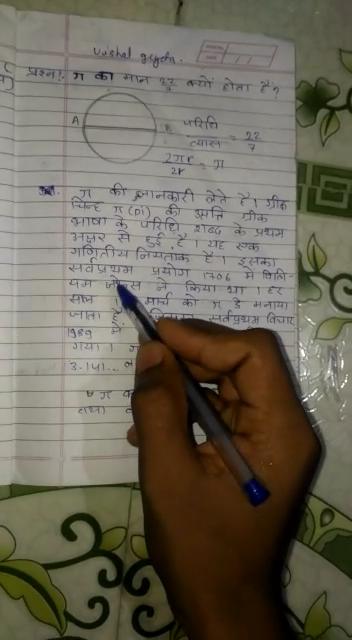 vishal gyan.
प्रश्न:- π का मान 22/7 क्यों होता है?
A B परिधि/व्यास = 22/7
2πr/2r = π
π की जानकारी लेते है। ग्रीक
चिन्ह π (pi) की उत्पत्ति ग्रीक
भाषा के परिधि शब्द के प्रथम
अक्षर से हुई है। यह एक
गणितीय नियतांक है। इसका
सर्वप्रथम प्रयोग 1706 में विलि-
यम जोन्स ने किया था। हर
साल मार्च को π डे मनाया
जाता है सर्वप्रथम विचार
1989 में
गया।
3.141...
π क
तथा